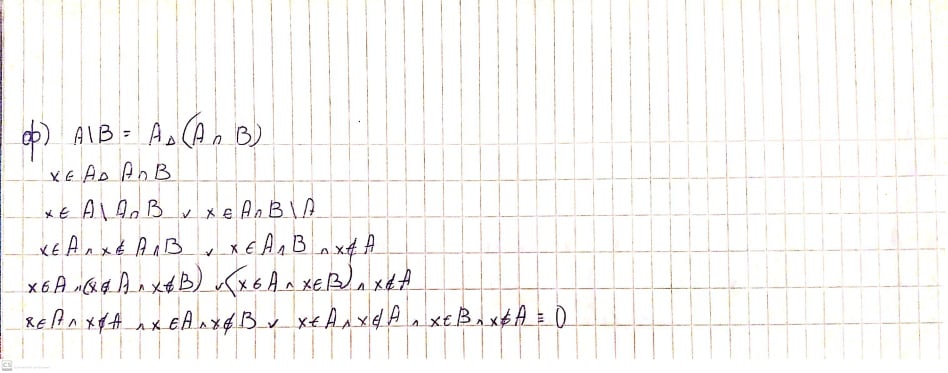 ф) A\B = A△(A∩B)
x∈A△A∩B
x∈A\A∩B ∨ x∈A∩B\A
x∈A∧x∉A∩B ∨ x∈A∩B∧x∉A
x∈A∧(x∉A∧x∉B)∨(x∈A∧x∈B)∧x∉A
x∈A∧x∉A∧x∈A∧x∉B ∨ x∈A∧x∉A∧x∈B∧x∉A ≡ 0
CS